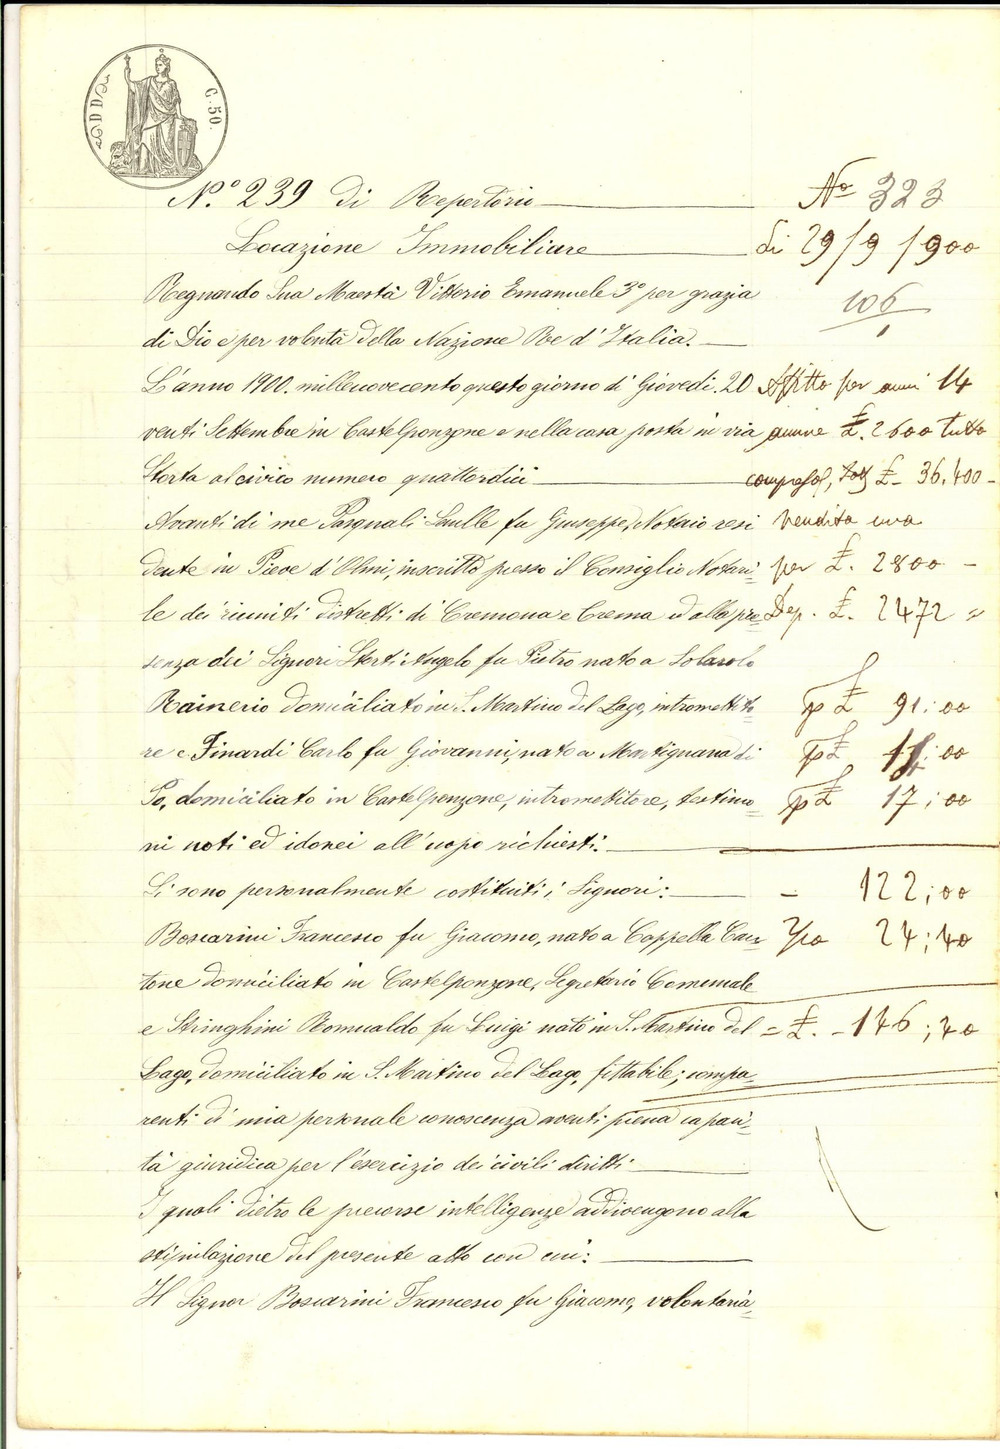 D D
C. 50.
N.° 239 di Repertorio
Locazione Immobiliare
Regnando Sua Maestà Vittorio Emanuele 3° per grazia
di Dio e per volontà della Nazione Re d'Italia.
L'anno 1900. millenovecento questo giorno di Giovedì. 20
venti Settembre in Castelponzone e nella casa posta in via
Storta al civico numero quattordici
Avanti di me Pasquali Saulle fu Giuseppe, Notaio resi
dente in Pieve d'Olmi, inscritto presso il Consiglio Notari=
le dei riuniti distretti di Cremona e Crema ed alla pre=
senza dei Signori Storti Angelo fu Pietro nato a Solarolo
Rainerio domiciliato in S. Martino del Lago, intromettito=
re e Finardi Carlo fu Giovanni, nato a Martignana di
Po, domiciliato in Castelponzone, intromettitore, testimo=
ni noti ed idonei all'uopo richiesti.
Si sono personalmente costituiti i Signori:
Boscarini Francesco fu Giacomo, nato a Cappella Can=
tone domiciliato in Castelponzone, Segretario Comunale
e Stringhini Romualdo fu Luigi nato in S. Martino del
Lago, domiciliato in S. Martino del Lago, fittabile; compa=
renti di mia personale conoscenza aventi piena capaci=
tà giuridica per l'esercizio dei civili diritti
I quali dietro le precorse intelligenze addivengono alla
stipulazione del presente atto con cui:
Il Signor Boscarini Francesco fu Giacomo, volontaria=
N° 323
di 29/9/900
106
Affitto per anni 14
annue £. 2600 tutto
compreso, £ 36.400
Vendita uva
per £. 2800
Dep. £. 2472
p £ 91:00
p £ 14:00
p £ 17:00
122:00
24:40
= £. 146:40